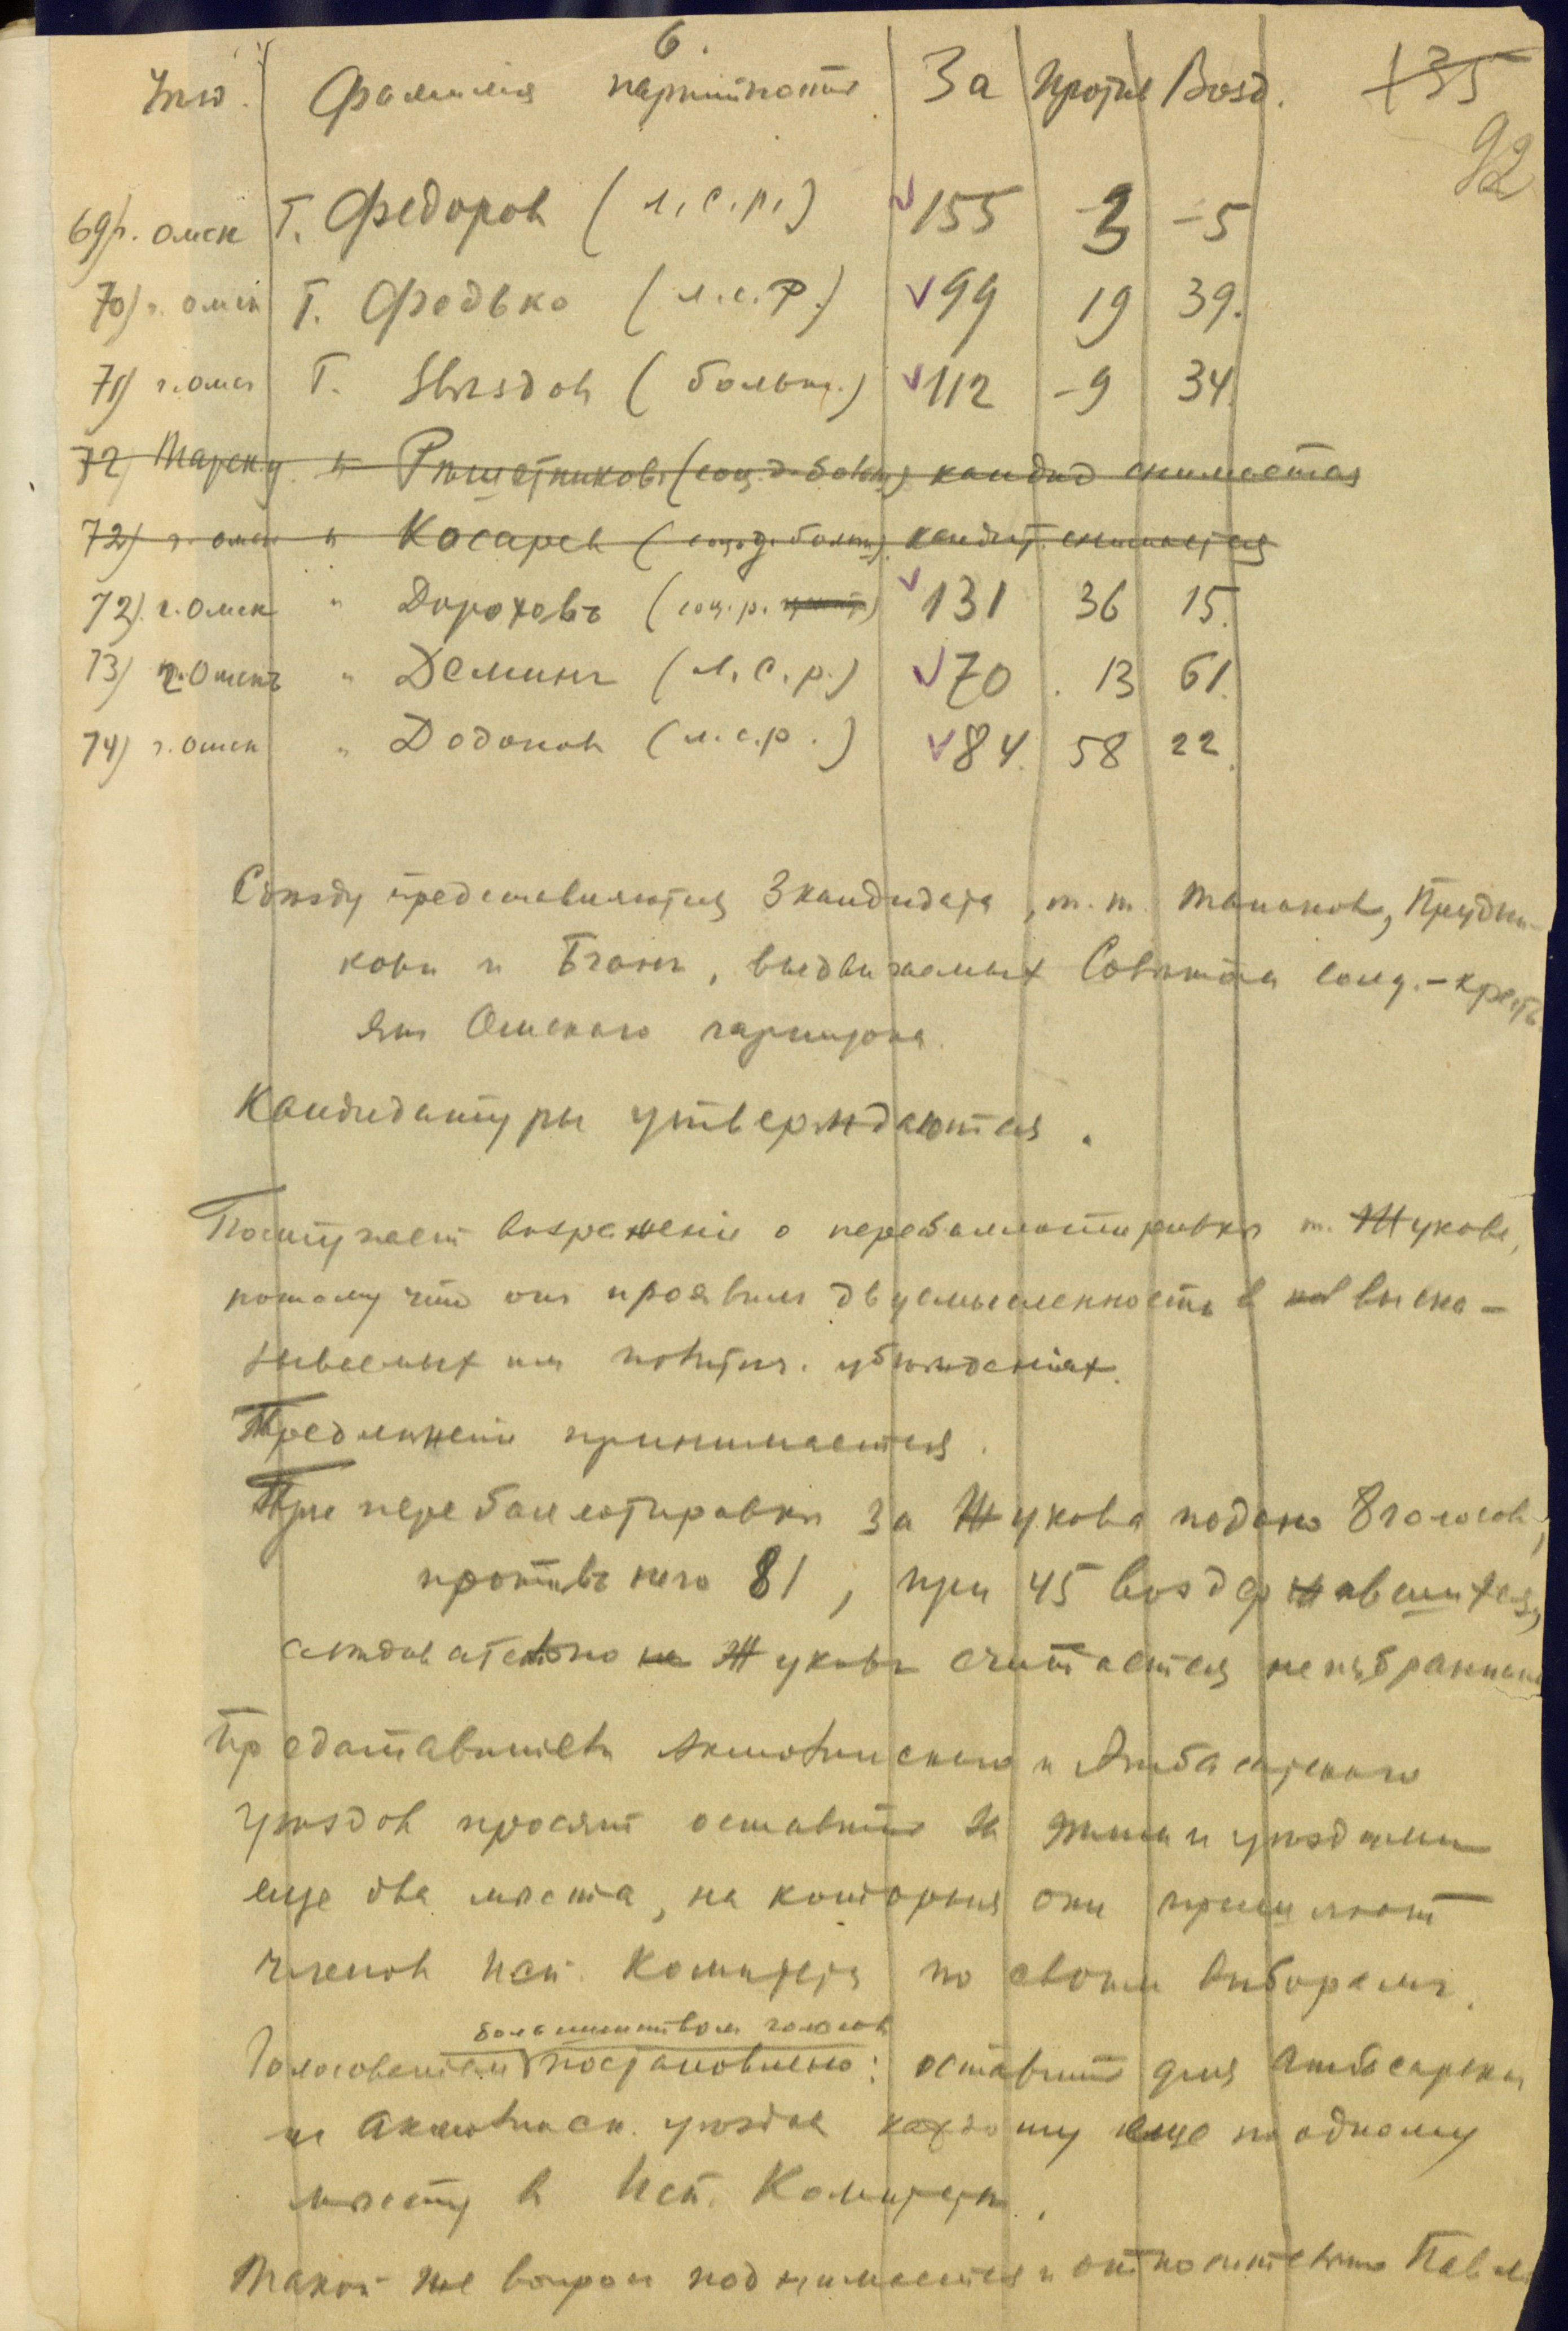 6.
Фамилия партийность За Против Возд. 135
92
69) г. Омск Т. Федоров (л.с.р.) 155 3 –5
70) г. Омск Т. Федько (л.с.р.) 99 19 39.
71) г. Омск Т. Звѣздов (больш.) 112 –9 34
72) Тарск. у. " Рѣшетников (соц.д. больш) кандид снимается
72) г. Омск " Косарев (соц.д. больш) кандит. снимается
72). г. Омск " Дороховъ (соц.р. ) 131 36 15.
73) г. Омскъ " Демин (л.с.р.) 70 . 13 61.
74) г. Омск " Додонов (л.с.р.) 84. 58 22.
Съѣзду представляются 3 кандидата, т.т. Прудни-
ков и , выдвигаемых Совѣтом солд.-кресть
ян Омского гарнизона.
Кандидатуры утверждаются.
Поступает возражение о перебаллотировкѣ т. Жукова,
потому что он проявил двусмысленность в выска-
зываемых им политич. убѣжденіях.
Предложеніе принимается.
При перебаллотировкѣ за Жукова подано 8 голосов,
противъ него 81, при 45 воздержавшихся,
слѣдовательно Жуков считается неизбранным
Представители Акмолинского и Атбасарского
уѣздов просят оставить за этими уѣздами
еще два мѣста, на которыя они пришлют
членов Исп. Комитета по своим выборам.
большинством голосов
Голосованием постановлено: оставить для Атбасарскаго
и Акмолинск. уѣздов каждому еще по одному
мѣсту в Исп. Комитетѣ.
Такой же вопрос поднимается и относительно Павло